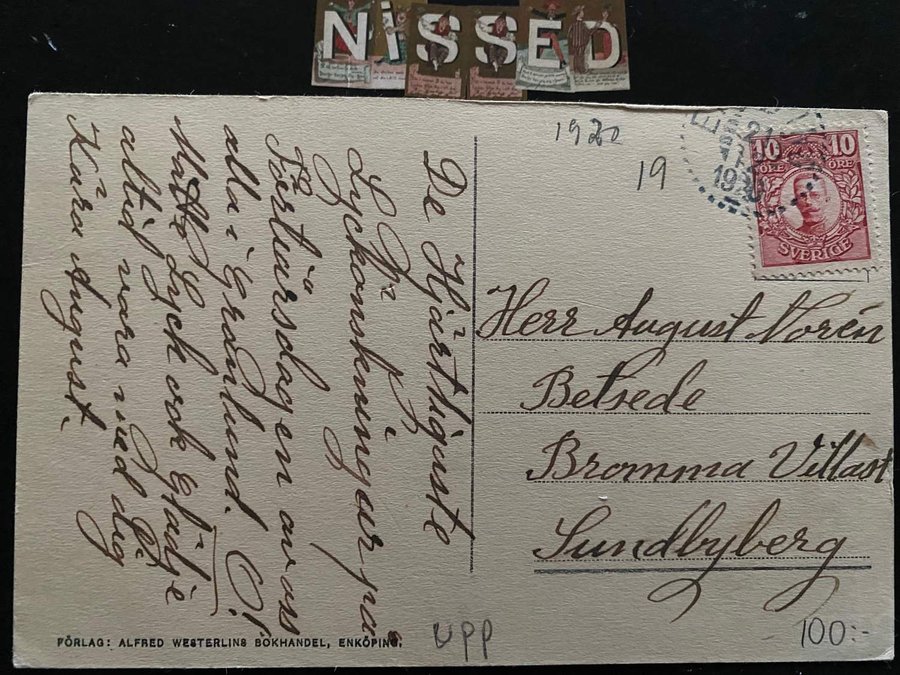 NiSSED
1920
19
10 10
ÖRE ÖRE
SVERIGE
De Hjärtligaste
Lyckönskningar på
av oss
alla i Grönlund. O!
Måtte Lyck ock glädje
altid vara med dig
Käre August.
Herr August Norén
Betsede
Bromma Villast
Sundbyberg
FÖRLAG: ALFRED WESTERLINS BOKHANDEL, ENKÖPING.
UPP
100:-